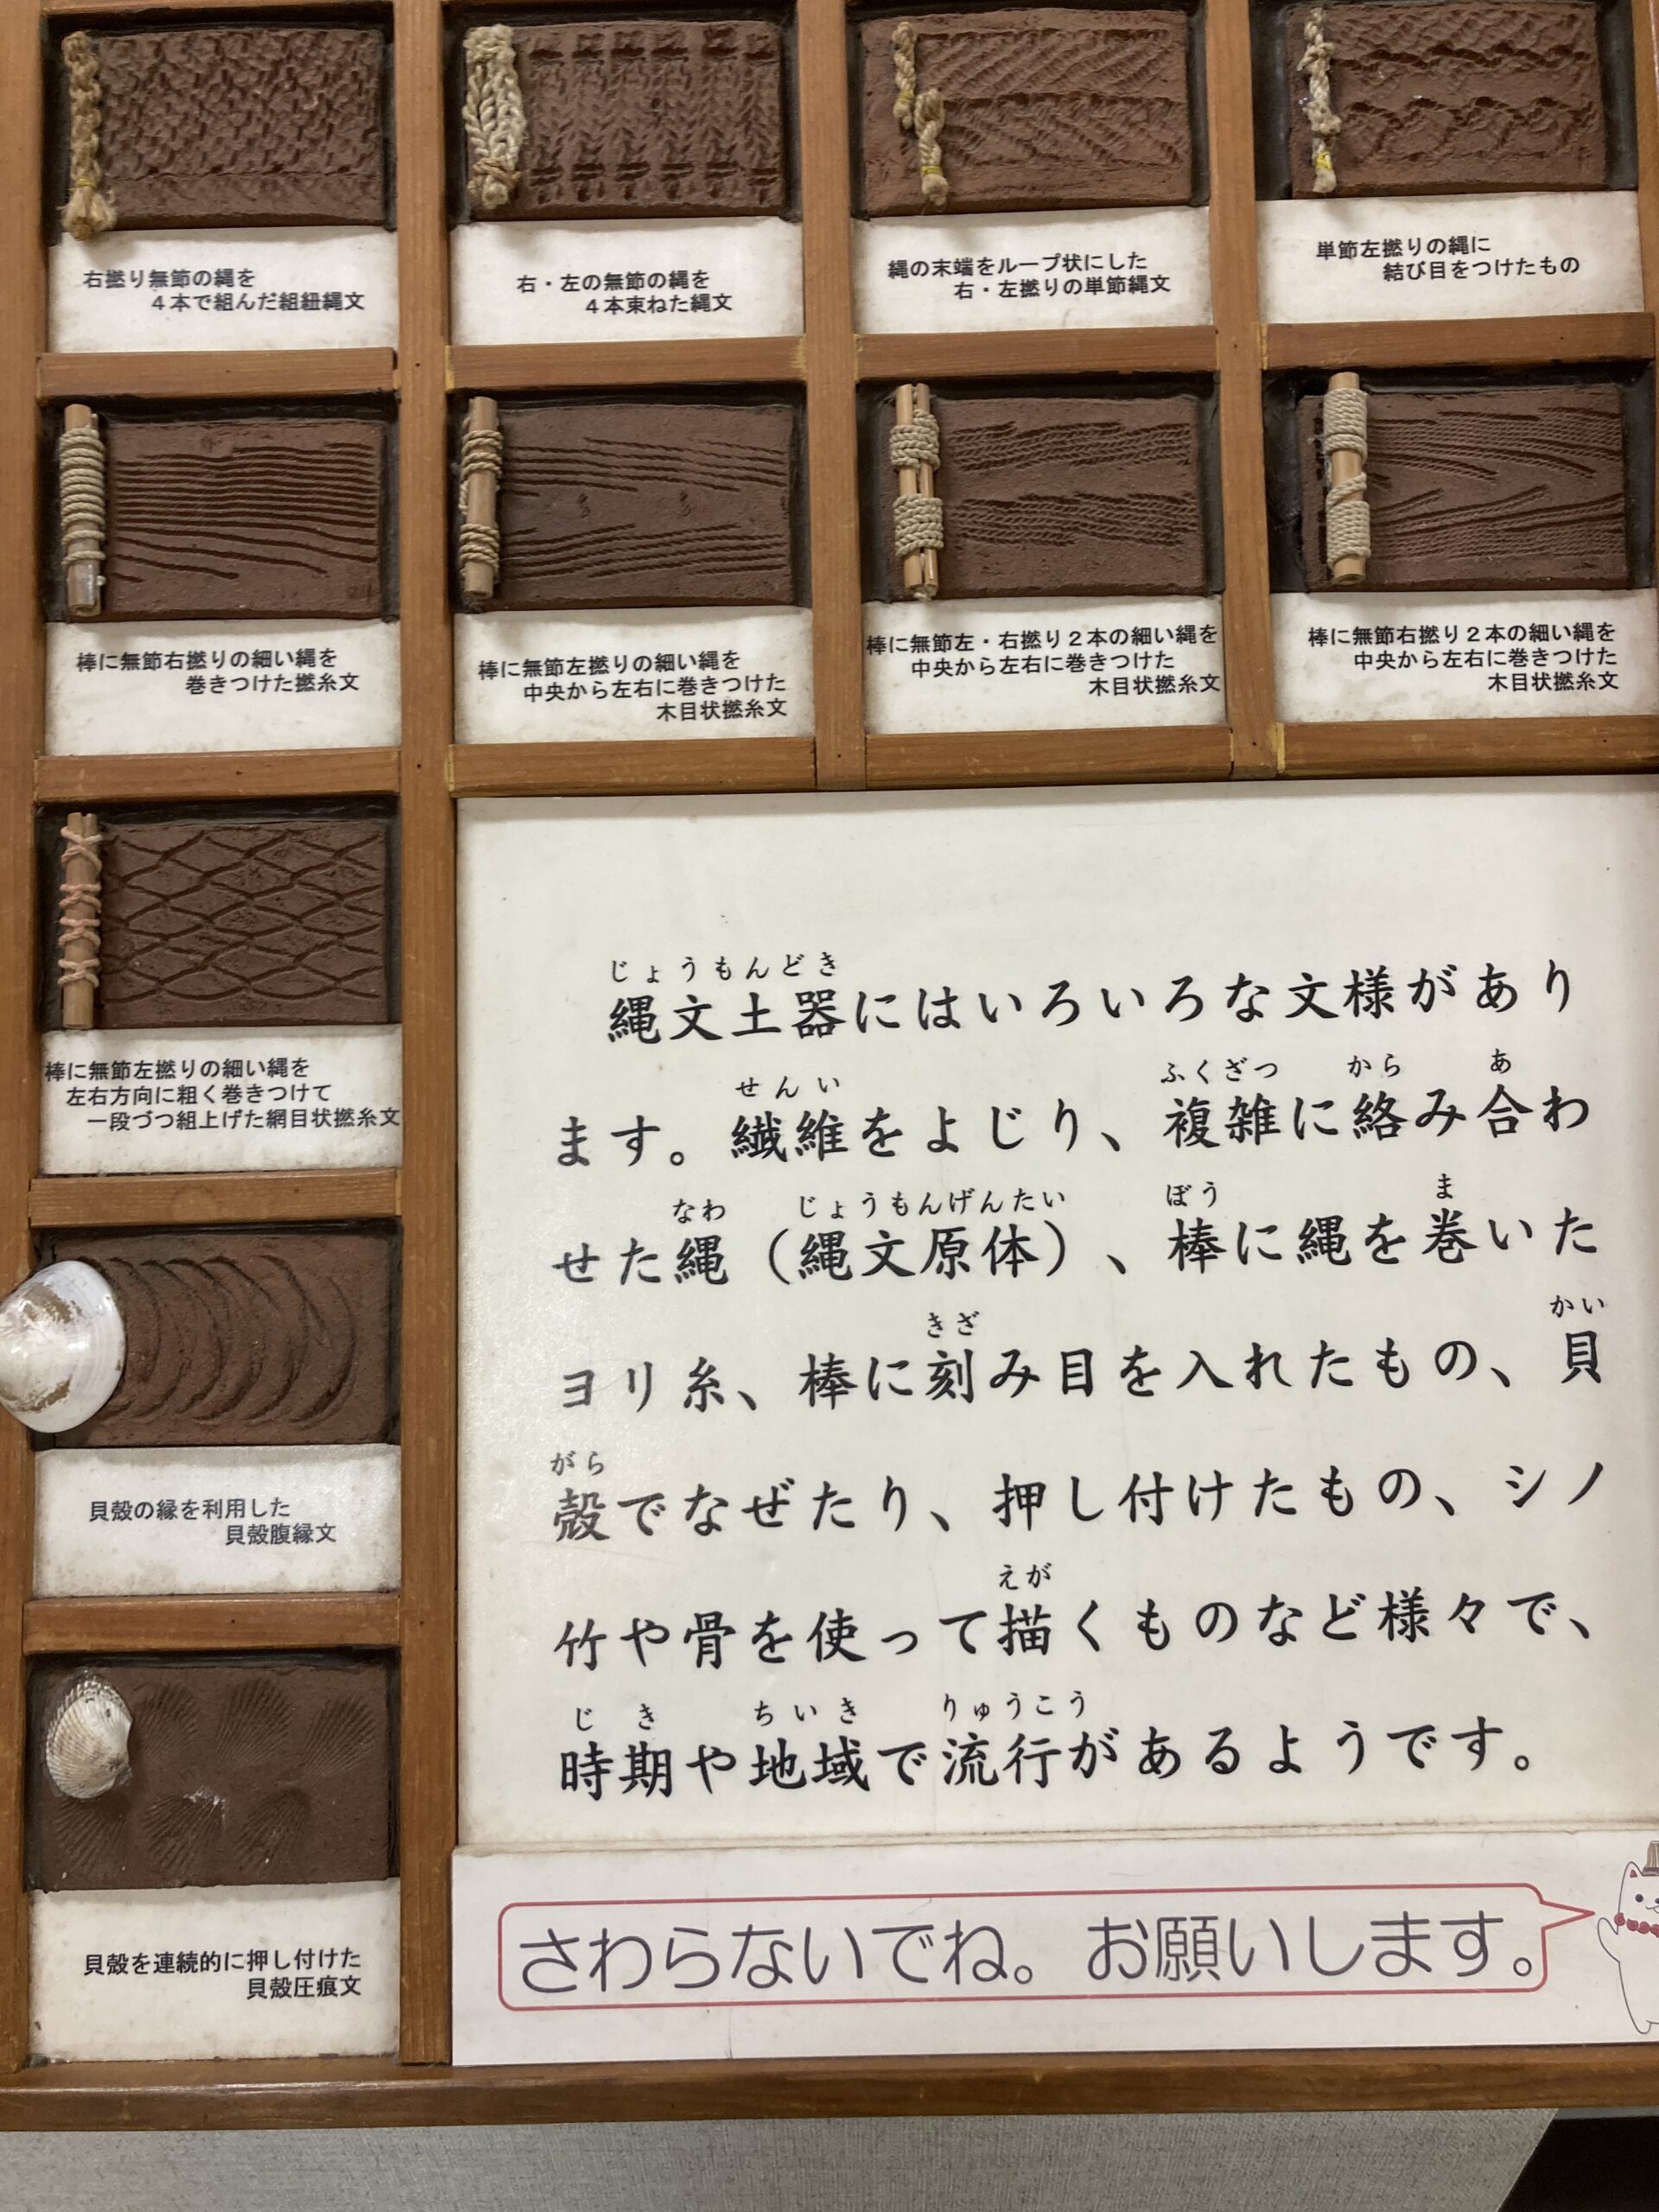 右撚り無節の縄を
４本で組んだ組紐縄文
右・左の無節の縄を
４本束ねた縄文
縄の末端をループ状にした
右・左撚りの単節縄文
単節左撚りの縄に
結び目をつけたもの
棒に無節右撚りの細い縄を
巻きつけた撚糸文
棒に無節左撚りの細い縄を
中央から左右に巻きつけた
木目状撚糸文
棒に無節左・右撚り２本の細い縄を
中央から左右に巻きつけた
木目状撚糸文
棒に無節右撚り２本の細い縄を
中央から左右に巻きつけた
木目状撚糸文
棒に無節左撚りの細い縄を
左右方向に粗く巻きつけて
一段づつ組上げた網目状撚糸文
貝殻の縁を利用した
貝殻腹縁文
貝殻を連続的に押し付けた
貝殻圧痕文
じょうもんどき
縄文土器にはいろいろな文様があり
せんい ふくざつ から あ
ます。繊維をよじり、複雑に絡み合わ
なわ じょうもんげんたい ぼう ま
せた縄（縄文原体）、棒に縄を巻いた
きざ かい
ヨリ糸、棒に刻み目を入れたもの、貝
がら
殻でなぜたり、押し付けたもの、シノ
えが
竹や骨を使って描くものなど様々で、
じき ちいき りゅうこう
時期や地域で流行があるようです。
さわらないでね。お願いします。